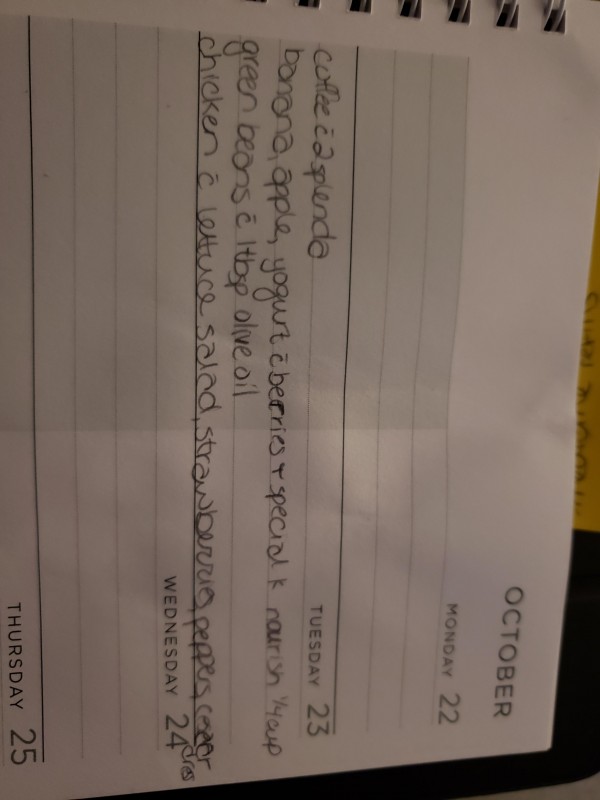 OCTOBER
MONDAY 22
TUESDAY 23
coffee c̄ 2 splenda
banana, apple, yogurt c̄ berries + special k nourish 1/4 cup
green beans c̄ 1 tbsp olive oil
chicken c̄ lettuce salad, strawberries, peppers,
WEDNESDAY 24
THURSDAY 25